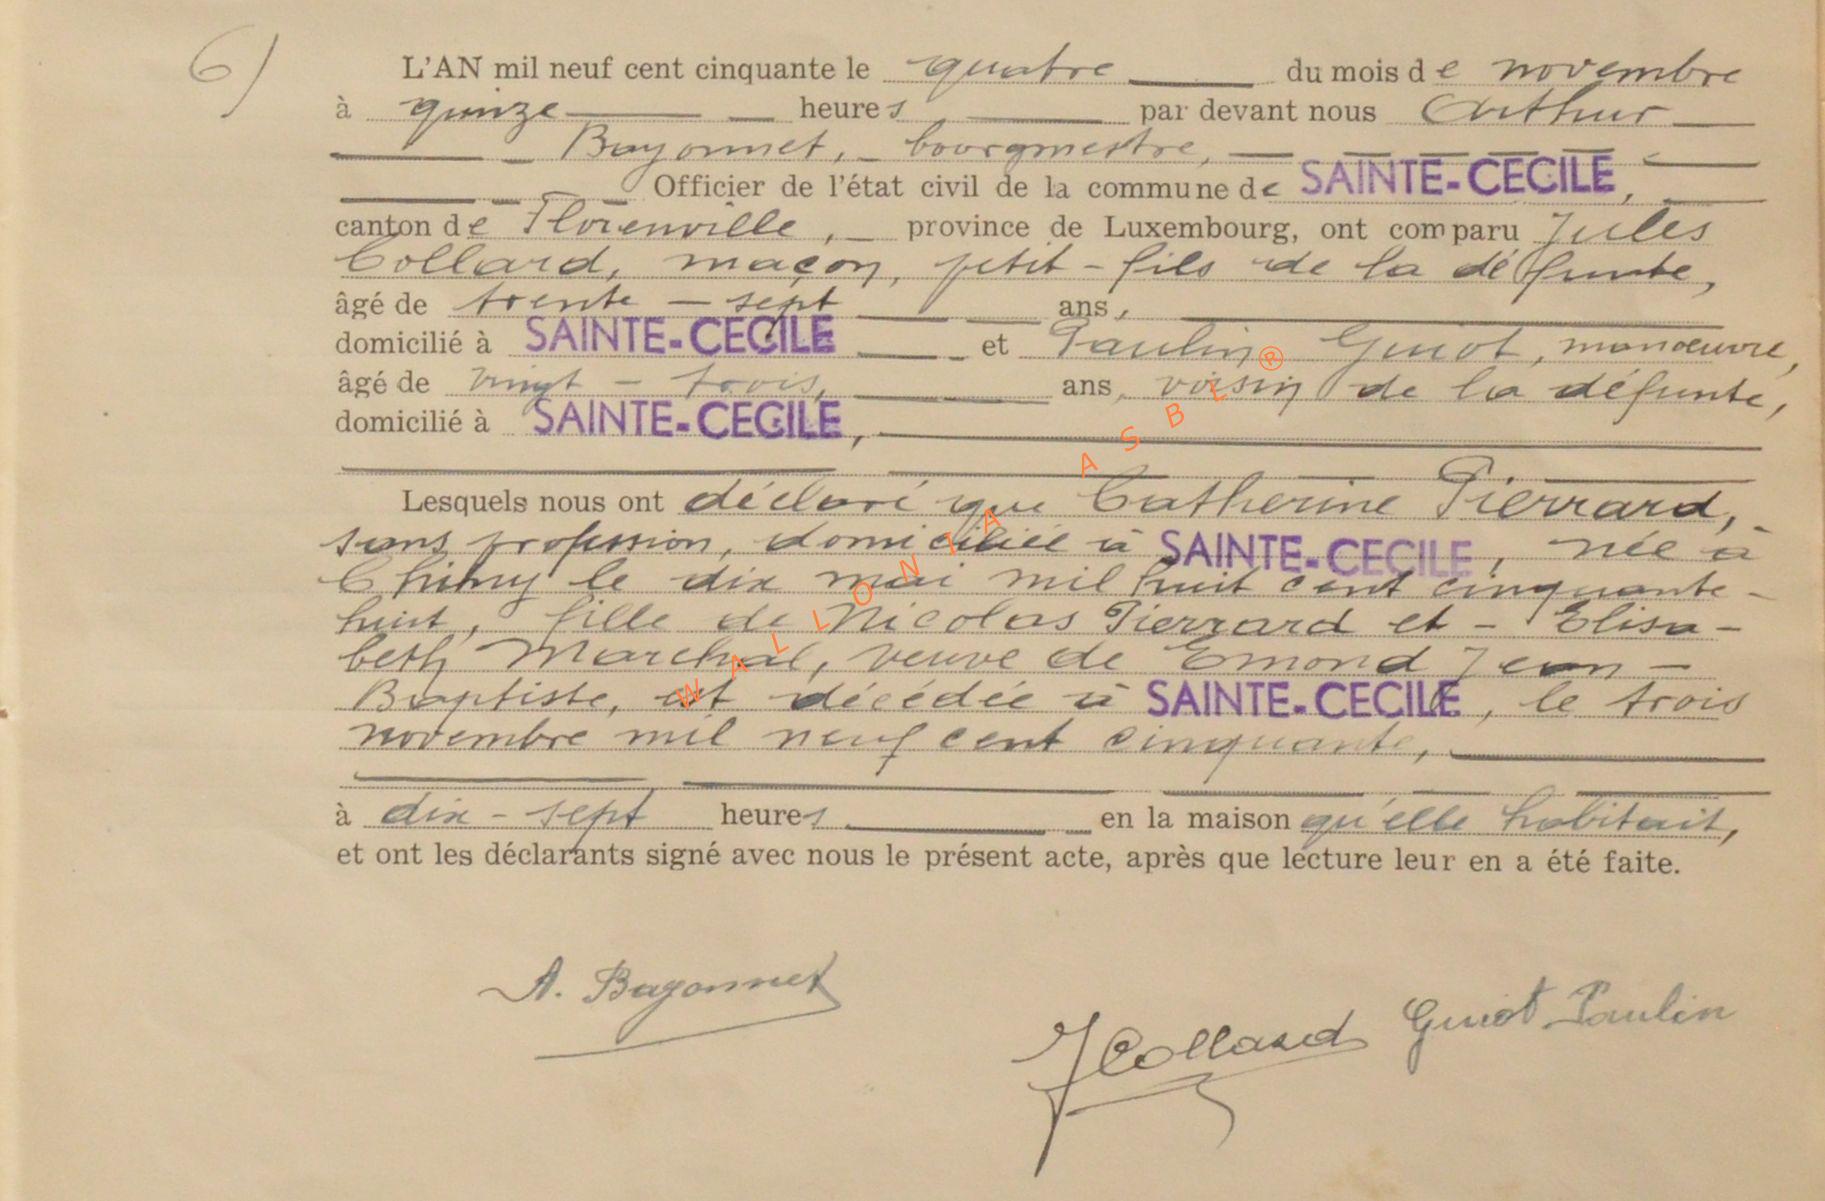 6)
L'AN mil neuf cent cinquante le quatre du mois de novembre
à quinze heures par devant nous Arthur
Bayonnet, bourgmestre,
Officier de l'état civil de la commune de SAINTE-CECILE,
canton de Florenville, province de Luxembourg, ont comparu Jules
Collard, maçon, petit-fils de la défunte,
âgé de trente-sept ans,
domicilié à SAINTE-CECILE et Paulin Guiot, manœuvre,
âgé de vingt-trois, ans, voisin de la défunte,
domicilié à SAINTE-CECILE,
Lesquels nous ont déclaré que Catherine Pierrard,
sans profession, domiciliée à SAINTE-CECILE, née à
Chiny le dix mai mil huit cent cinquante-
huit, fille de Nicolas Pierrard et - Elisa-
beth Marchal, veuve de Emond Jean-
Baptiste, est décédée à SAINTE-CECILE, le trois
novembre mil neuf cent cinquante,
à dix-sept heures en la maison qu'elle habitait,
et ont les déclarants signé avec nous le présent acte, après que lecture leur en a été faite.
A. Bayonnet
J Collard Guiot Paulin
WALLONIA ASBL®